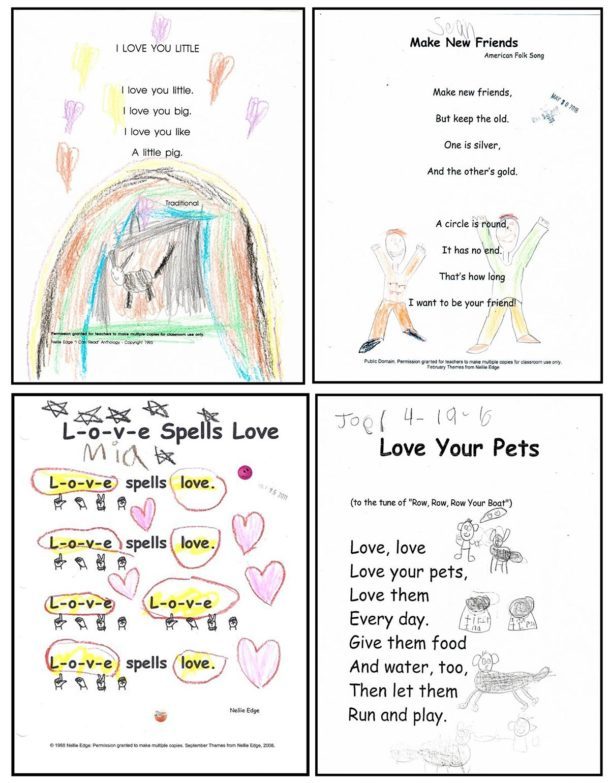 I LOVE YOU LITTLE
I love you little.
I love you big.
I love you like
A little pig.
Traditional
Permission granted for teachers to make multiple copies for classroom use only.
Nellie Edge "I Can Read" Anthology - Copyright
Sean
Make New Friends
American Folk Song
Make new friends,
But keep the old.
One is silver,
And the other's gold.
A circle is round,
It has no end.
That's how long
I want to be your friend!
Public Domain. Permission granted for teachers to make multiple copies for classroom use only.
February Themes from Nellie Edge
L-o-v-e Spells Love
Mia
L-o-v-e spells love.
L-o-v-e spells love.
L-o-v-e L-o-v-e
L-o-v-e spells love.
Nellie Edge
© 1988 Nellie Edge. Permission granted to make multiple copies. September Themes from Nellie Edge, 2008.
Joel 4-19-16
Love Your Pets
(to the tune of "Row, Row, Row Your Boat")
Love, love
Love your pets,
Love them
Every day.
Give them food
And water, too,
Then let them
Run and play.